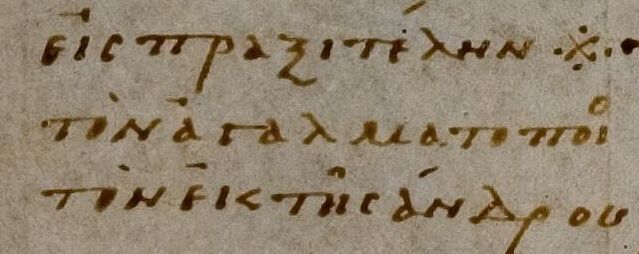 εἰς πραξιτέλην
τὸν ἀγαλματοποιο
τὸν ἐκ τῆς ἄνδρου